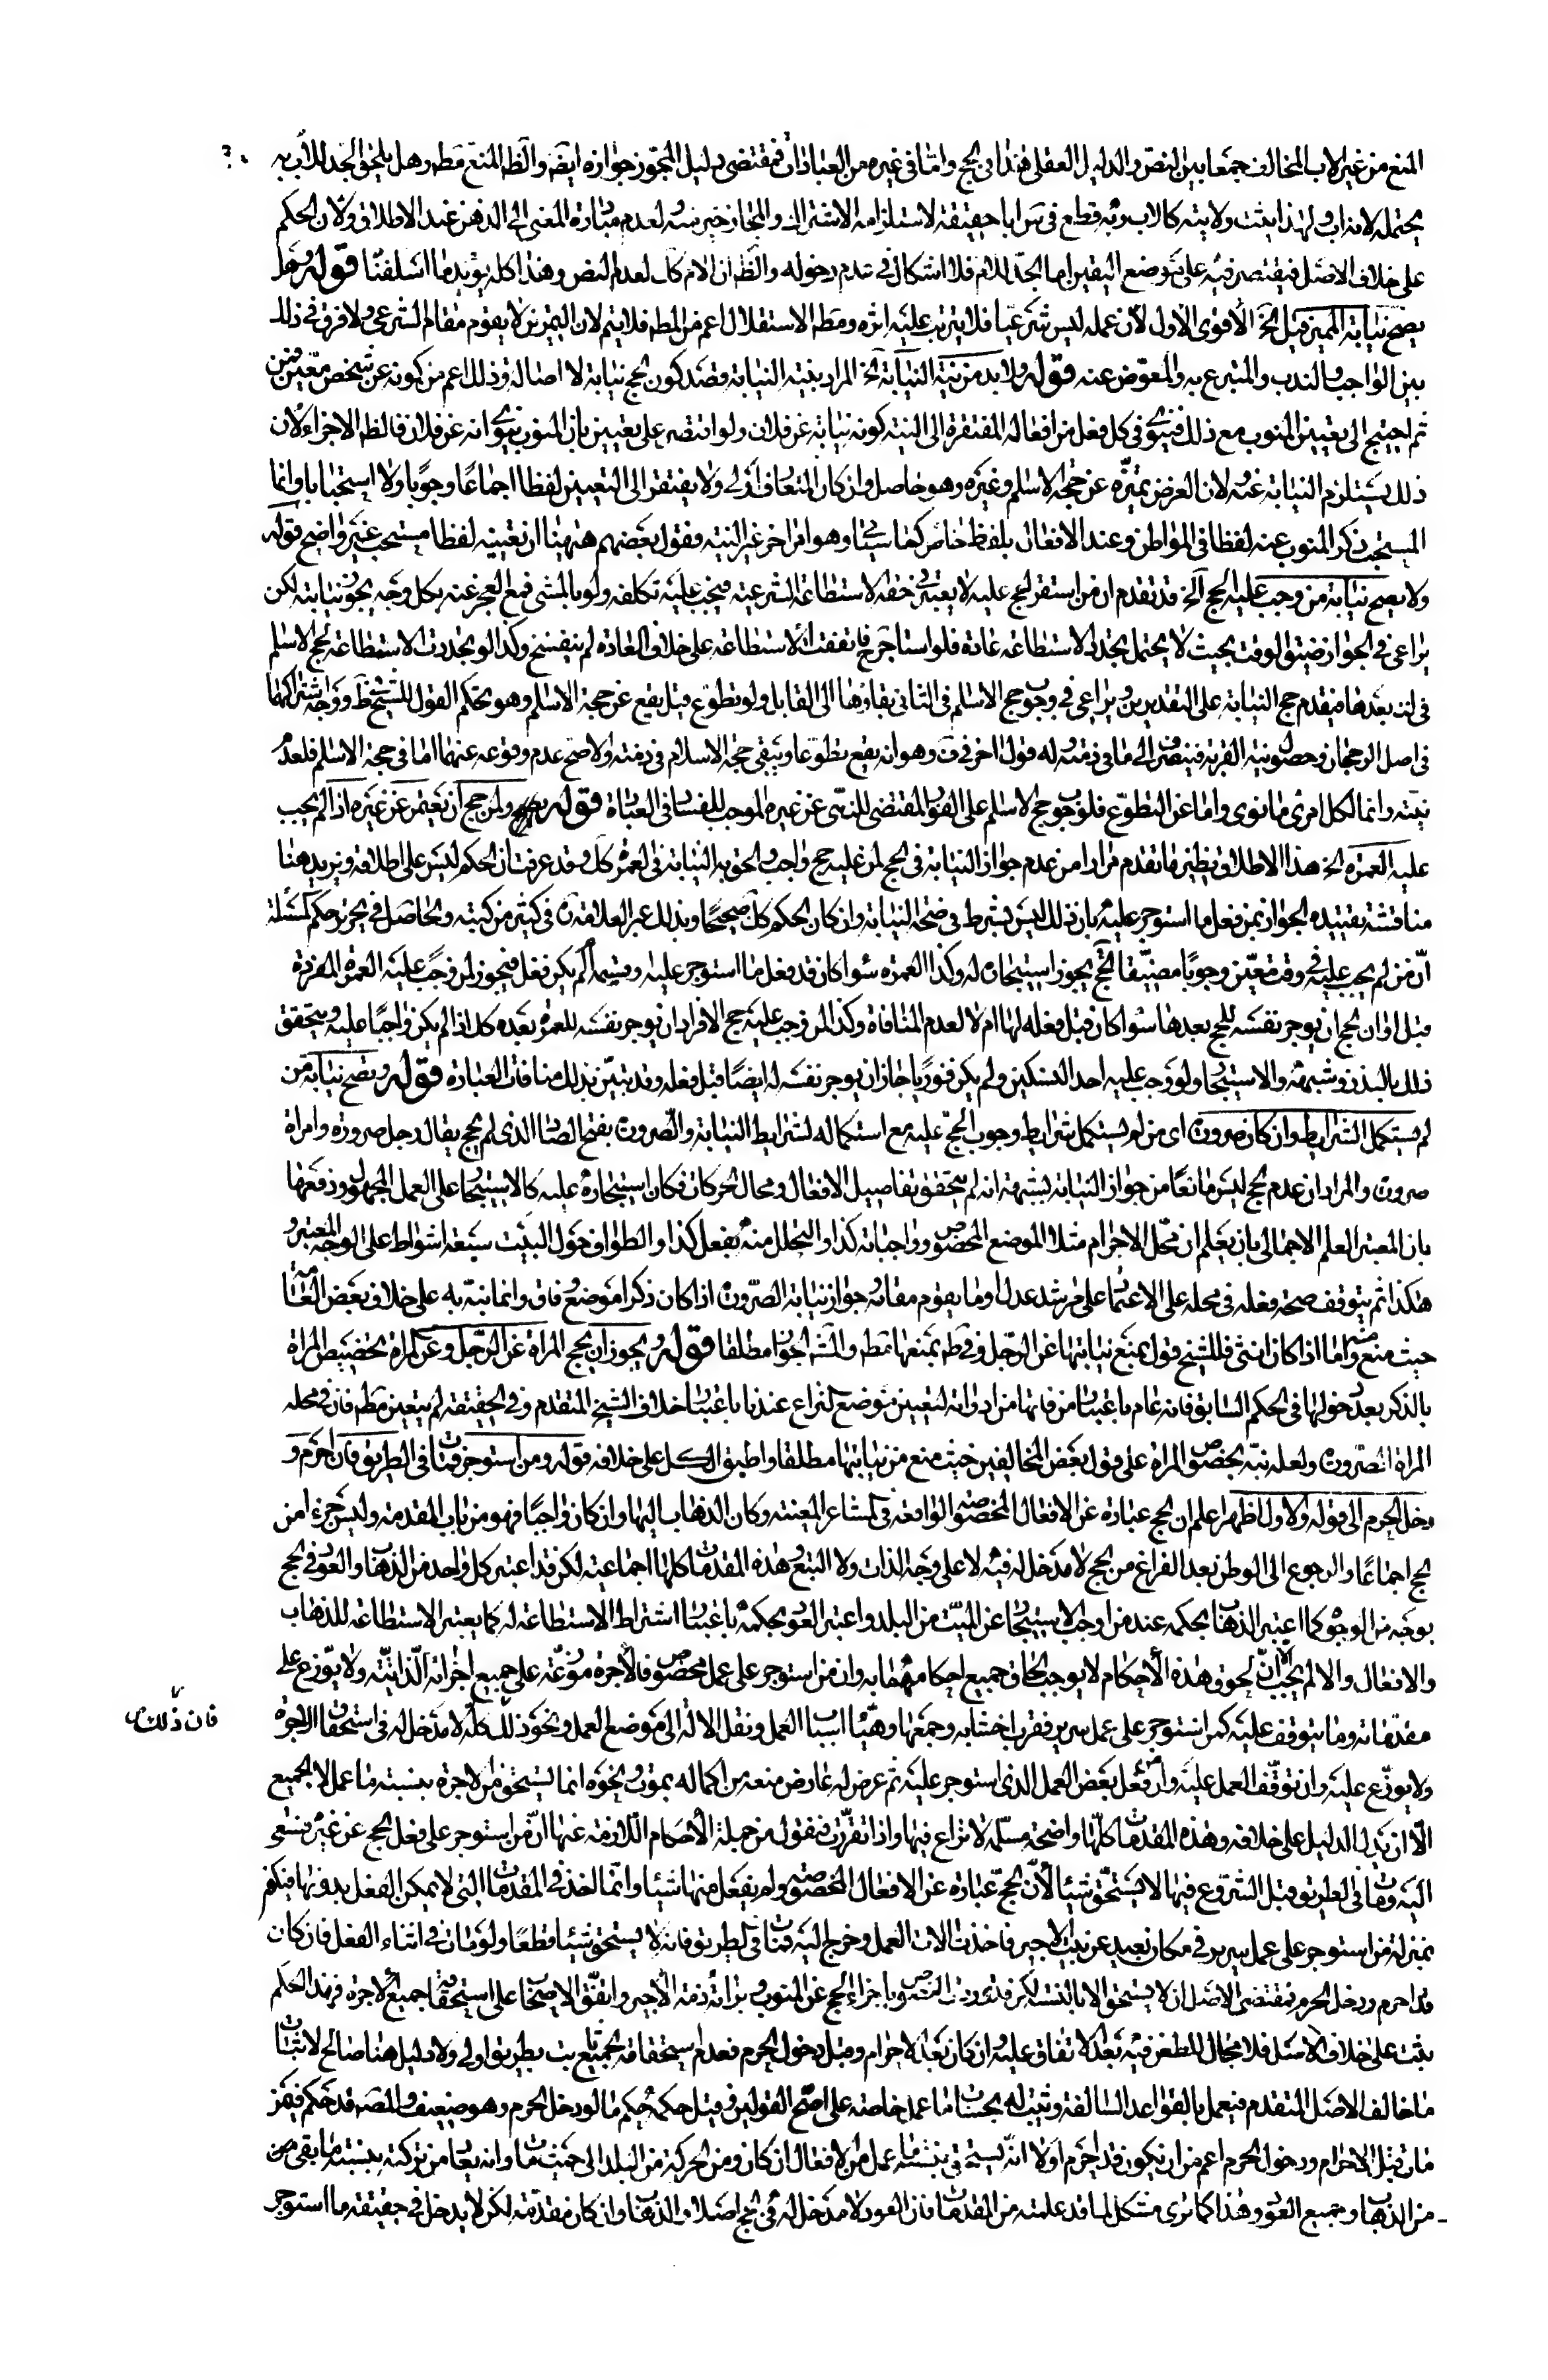 المنع من غير الاب المخالف جمعا بين النص والدليل العقلي هذا في الحج واما في غيره من العبادات فمقتضى دليل المجوز جوازه ايضا والظ المنع مط وهل يلحق الجد للاب به
يحتمله لانه اب ولهذا يثبت ولايته كالاب وبه قطع في س اباحقيقة لاستلزامه الاشتراك والمجاز خير منه لعدم مبادرة المعنى الى الذهن عند الاطلاق ولان الحكم
على خلاف الاصل فيقتصر فيه على موضع اليقين اما الجد للام فلا اشكال في عدم دخوله والظ ان الام كك لعدم النص وهذا كله يؤيد ما اسلفنا قوله وهل
يصح نيابة المميز قيل الخ الاقوى الاول لان عمله ليس شرعيا فلا يترتب عليه اثره ومط الاستقلال اعم من المط فلا يتم لان التمرين لا يقوم مقام الشرعي ولا فرق في ذلك
بين الواجب والندب والمتبرع به والمعوض عنه قوله ولا بد من نية النيابة الخ المراد بنية النيابة قصد كون الحج نيابة لا اصالة وذلك اعم من كونه عن شخص معين فمن
ثم احتيج الى تعيين المنوب مع ذلك فينوي في كل فعل من افعاله المفتقرة الى النية كونه نيابة عن فلان ولو اقتصر على تعيين بان المنوب ينوي انه عن فلان فالظ الاجزاء لان
ذلك يستلزم النيابة عنه ولان الغرض تميزه عن حجة الاسلم وغيره وهو حاصل وان كان المتعارف اولى ولا يفتقر الى التعيين لفظا اجماعا وجوبا ولا استحبابا وانما
المستحب ذكر المنوب عنه لفظا في المواطن وعند الافعال بلفظ خاص كما سيأتي وهو امر اخر غير النية فقول بعضهم ههنا ان تعيينه لفظا مستحب غير واضح قوله
ولا يصح نيابة من وجب عليه الحج الخ قد تقدم ان من استقر الحج عليه لا يعتبر في حقه الاستطاعة الشرعية فيجب عليه تكلفه ولو بالمشي فمع العجز عنه بكل وجه يجوز نيابته لكن
يراعى في الجواز ضيق الوقت بحيث لا يحتمل تجدد الاستطاعة عادة فلو استاجر كك فاتفقت الاستطاعة على خلاف العادة لم ينفسخ وكذا لو تجددت الاستطاعة لحج الاسلم
في اثنا بعدها فيقدم حج النيابة على التقديرين ويراعى في وجوب حج الاسلم في الثاني بقاؤها الى القابل ولو تطوع قيل يقع عن حجة الاسلم وهو تحكم القول للشيخ ط ووجه اشتراكهما
في اصل الرجحان وحصول نية القربة فينصرف الى ما في ذمته وله قول اخر في ف وهو انه يقع تطوعا ويبقى حجة الاسلام في ذمته والاصح عدم وقوعه عنهما اما في حجة الاسلم فلعدم
نيته وانما لكل امرئ ما نوى واما عن التطوع فلوجوب حج الاسلم على الفور المقتضي للنهي عن غيره الموجب للفساد في العبادة قوله ولمن حج ان يعتمر عن غيره اذا لم يجب
عليه العمرة الخ هذا الاطلاق نظير ما تقدم مرارا من عدم جواز النيابة في الحج لمن عليه حج واجب والحق به النيابة في العمرة كك وقد عرفت ان الحكم ليس على اطلاقه ويزيد هنا
مناقشة بتقييده الجواز بمن فعل ما استوجر عليه بان ذلك ليس بشرط في صحة النيابة وان كان الحكم كك صحيحا وبذلك عبر العلامة ره في كثير من كتبه والحاصل في تحرير حكم المسئلة
ان من لم يجب عليه في وقت معين وجوبا مضيقا الحج يجوز استيجاره له وكذا العمرة سواء كان قد فعل ما استوجر عليه وقسيمه ام لم يكن فعل فيجوز لمن وجب عليه العمرة المفردة
قبل اوان الحج ان يوجر نفسه للحج بعدها سواء كان قبل فعله لها ام لا لعدم المنافاة وكذا لمن وجب عليه حج الافراد ان يوجر نفسه للعمرة بعده كل اذا لم يكن واجبا عليه ويتحقق
ذلك بالنذر وشبهه والاستيجار ولو وجب عليه احد النسكين ولم يكن فوريا جاز ان يوجر نفسه له ايضا قبل فعله وقد تبين بذلك منافات العبارة قوله وتصح نيابة من
لم يستكمل الشرايط وان كان صرورة اي من لم يستكمل شرايط وجوب الحج عليه مع استكماله لشرايط النيابة والصرورة بفتح الصاد الذي لم يحج يقال رجل صرورة وامراة
صرورة والمراد ان عدم الحج ليس مانعا من جواز النيابة بشبهة انه لم يتحقق تفاصيل الافعال ومحال الحركات فكان استيجاره عليه كالاستيجار على العمل المجهول ودفعها
بان المعتبر العلم الاجمالي بان يعلم ان محل الاحرام مثلا الموضع المخصوص وواجباته كذا والتحلل منه بفعل كذا والطواف حول البيت سبعة اشواط على الوجه المعتبر و
هكذا ثم يتوقف صحة فعله في محله على الاعتماد على مرشد عدل او ما يقوم مقامه وجواز نيابة الصرورة اذا كان ذكرا موضع وفاق وانما نبه به على خلاف بعض العامة
حيث منع منه واما اذا كان انثى فللشيخ قول بمنع نيابتها عن الرجل وفي ط بمنعها مط والمشهور الجواز مطلقا قوله ويجوز ان يحج المراة عن الرجل وعن المراة تخصيص المراة
بالذكر بعد دخولها في الحكم السابق فانه عام باعتبار من فانها من ادواته لتعيين موضع النزاع عندنا باعتبار خلاف الشيخ المتقدم وفي الحقيقة لم يتعين مط فان محله
المراة الصرورة ولعله نبه بخصوص المراة على قول بعض المخالفين حيث منع من نيابتها مطلقا واطبق الكل على خلافه قوله ومن استوجر فمات في الطريق فان احرم و
دخل الحرم الى قوله والاول اظهر اعلم ان الحج عبارة عن الافعال المخصوصة الواقعة في المشاعر المعينة وكان الذهاب اليها وان كان واجبا فهو من باب المقدمة وليس جزءا من
الحج اجماعا والرجوع الى الوطن بعد الفراغ من الحج لا مدخل له فيه لا على وجه الذات ولا التبع وهذه المقدمات كلها اجماعية لكن قد اعتبر كل واحد من الذهاب والعود في الحج
بوجه من الوجوه كما اعتبر الذهاب بحكمه عند من اوجب الاستيجار عن الميت من البلد واعتبر العود بحكمه باعتبار اشتراط الاستطاعة له كما يعتبر الاستطاعة للذهاب
والافعال والا لم يجب الا ان لحوق هذه الاحكام لا يوجب لحاق جميع احكامهما به وان من استوجر على عمل مخصوص فالاجرة موزعة على جميع اجزائه الذاتية ولا يوزع على
مقدماته وما يتوقف عليه كمن استوجر على عمل سرير فقرب اخشابه وجمعها وهيأ اسباب العمل ونقل الالة الى موضع العمل ونحو ذلك كله لا مدخل له في استحقاق الاجرة
فان ذلك
ولا يوزع عليه وان توقف العمل عليه وان من فعل بعض العمل الذي استوجر عليه ثم عرض له عارض منعه من اكماله بموت ونحوه انما يستحق من الاجرة بنسبة ما عمل الى الجميع
الا ان يدل الدليل على خلافه وهذه المقدمات كلها واضحة مسلمة لا نزاع فيها واذا تقررت فنقول من جملة الاحكام اللازمة عنها ان من استوجر على فعل الحج عن غيره فسعى
اليه ومات في الطريق وقبل الشروع فيها لا يستحق شيئا لان الحج عبارة عن الافعال المخصوصة ولم يفعل منها شيئا وانما اخذ في المقدمات التي لا يمكن الفعل بدونها فيكون
بمنزلة من استوجر على عمل سرير في مكان بعيد عن بيت الاجير فاخذ الات العمل وخرج اليه فمات في الطريق فانه لا يستحق شيئا قطعا ولو مات في اثناء الفعل فان كان
قد احرم ودخل الحرم فمقتضى الاصل ان لا يستحق الا بالنسبة لكن قد وردت النصوص باجزاء الحج عن المنوب وبراءة ذمة الاجير واتفق الاصحاب على استحقاقه جميع الاجرة فهذا الحكم
يثبت على خلاف الاصل فلا مجال للطعن فيه بعد الاتفاق عليه وان كان بعد الاحرام وقبل دخول الحرم فعدم استحقاقه الجميع يثبت بطريق اولى ولا دليل هنا صالح لاثبات
ما خالف الاصل المتقدم فيعمل بالقواعد السالفة ويثبت له بحساب ما عمل خاصة على اصح القولين وقيل حكمه حكم ما لو دخل الحرم وهو ضعيف والمصنف قد حكم فيمن
مات قبل الاحرام ودخول الحرم اعم من ان يكون قد احرم اولا انه يستحق بنسبة ما عمل من الافعال ان كان ومن الحركة من البلد الى حيث مات وانه يعاد من تركته بنسبة ما بقي من
من الذهاب وجميع العود وهذا كما ترى مشكل لما قد علمته من المقدمات فان العود لا مدخل له في الحج اصلا والذهاب وان كان مقدمة لكن لا يدخل في حقيقة ما استوجر